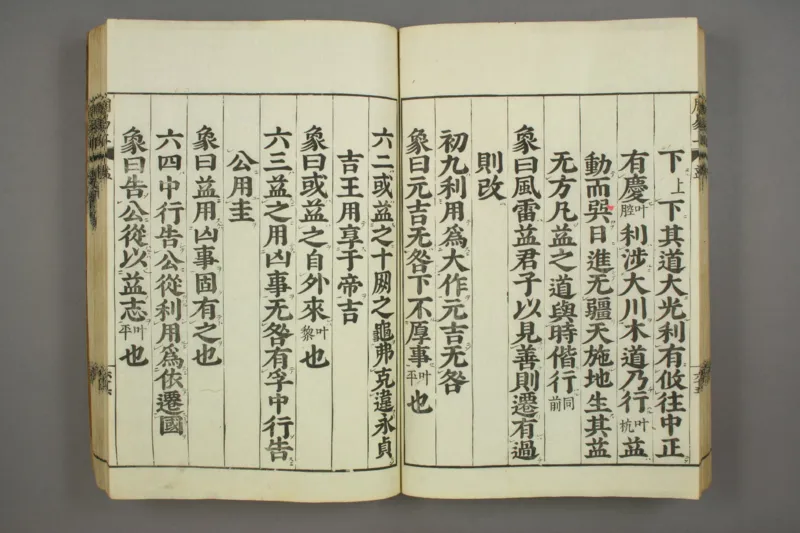 下上下其道大光利有攸往中正
有慶叶腔利涉大川木道乃行叶杭益
動而巽日進无疆天施地生其益
无方凡益之道與時偕行同前
象曰風雷益君子以見善則遷有過
則改
初九利用爲大作元吉无咎
象曰元吉无咎下不厚事叶平也
六二或益之十朋之龜弗克違永貞
吉王用享于帝吉
象曰或益之自外來叶黎也
六三益之用凶事无咎有孚中行告
公用圭
象曰益用凶事固有之也
六四中行告公從利用爲依遷國
象曰告公從以益志叶平也